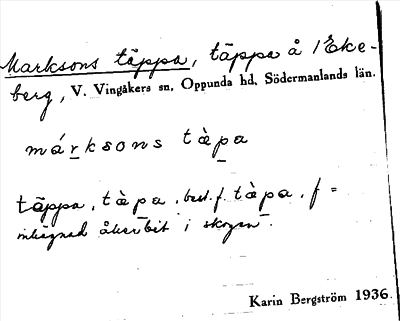 Marksons täppa, täppa å /Eke-
berg, V. Vingåkers sn, Oppunda hd, Södermanlands län.
márksons tàpa
täppa, tàpa, best. f. tàpa, f =
inhägnad åkerbit i skogen.
Karin Bergström 1936.